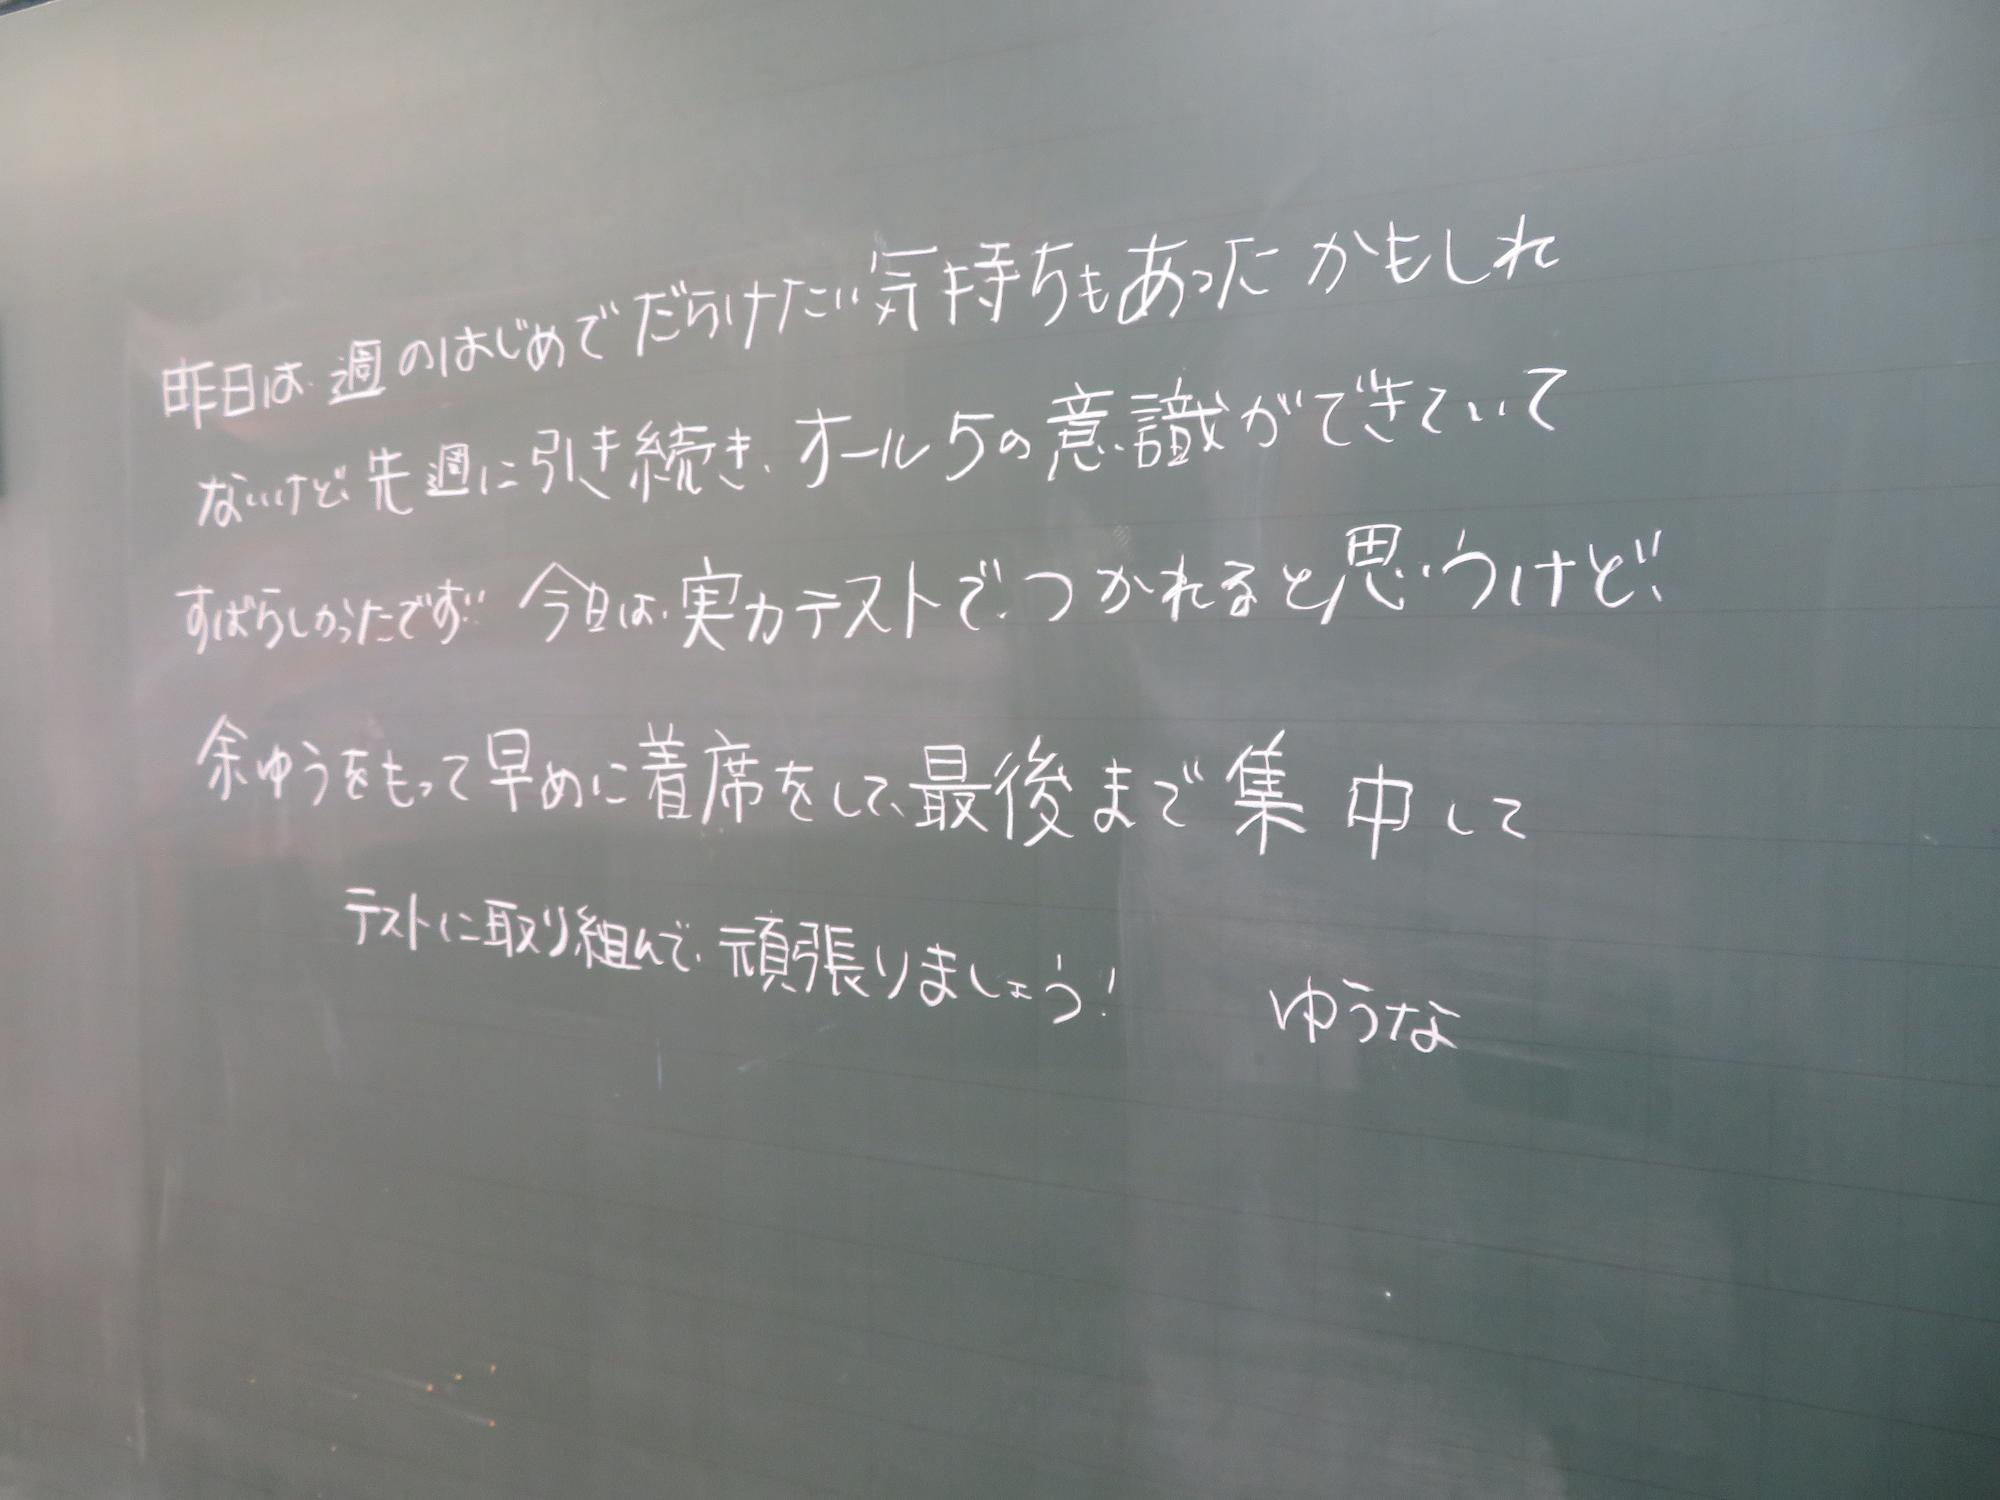 昨日は、週のはじめでだらけたい気持ちもあったかもしれ
ないけど、先週に引き続き、オール5の意識ができていて
すばらしかったです!! 今日は、実力テストで、つかれると思うけど、
余ゆうをもって早めに着席をして、最後まで集中して
テストに取り組んで、頑張りましょう!
ゆうな